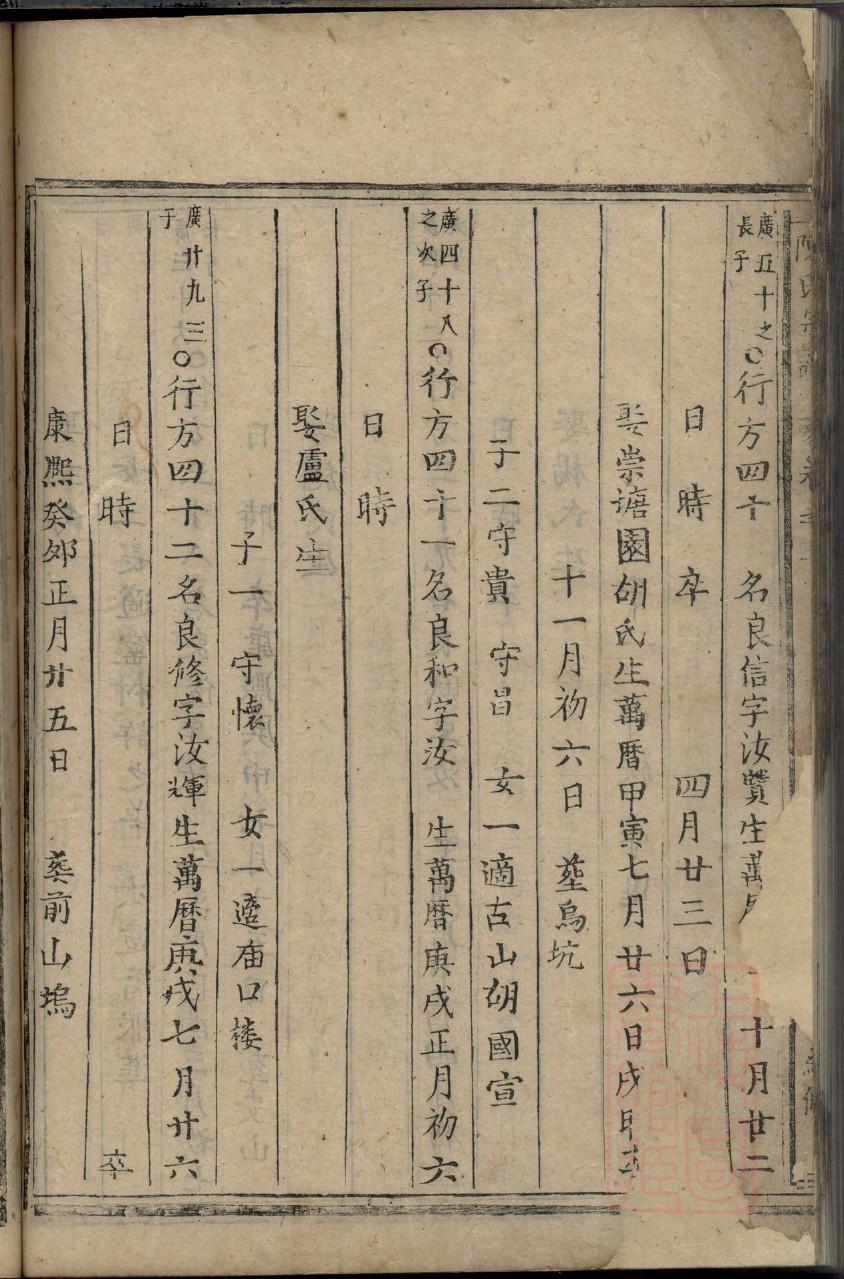 廣五十之長子○行方四十 名良信字汝賢生萬 十月廿二
日 時 卒 四月廿三日
娶崇塘園胡氏生萬曆甲寅七月廿六日戌時
十一月初六日 塟烏坑
子二守貴 守昌 女一適古山胡國宣
廣四十八之次子○行方四十一名良和字汝 生萬曆庚戌正月初六
日 時
娶盧氏生
子一守懷 女一適庙口楼
廣廿九三子○行方四十二名良修字汝輝生萬曆庚戌七月廿六
日 時 卒
康熙癸卯正月廿五日 葬前山塢